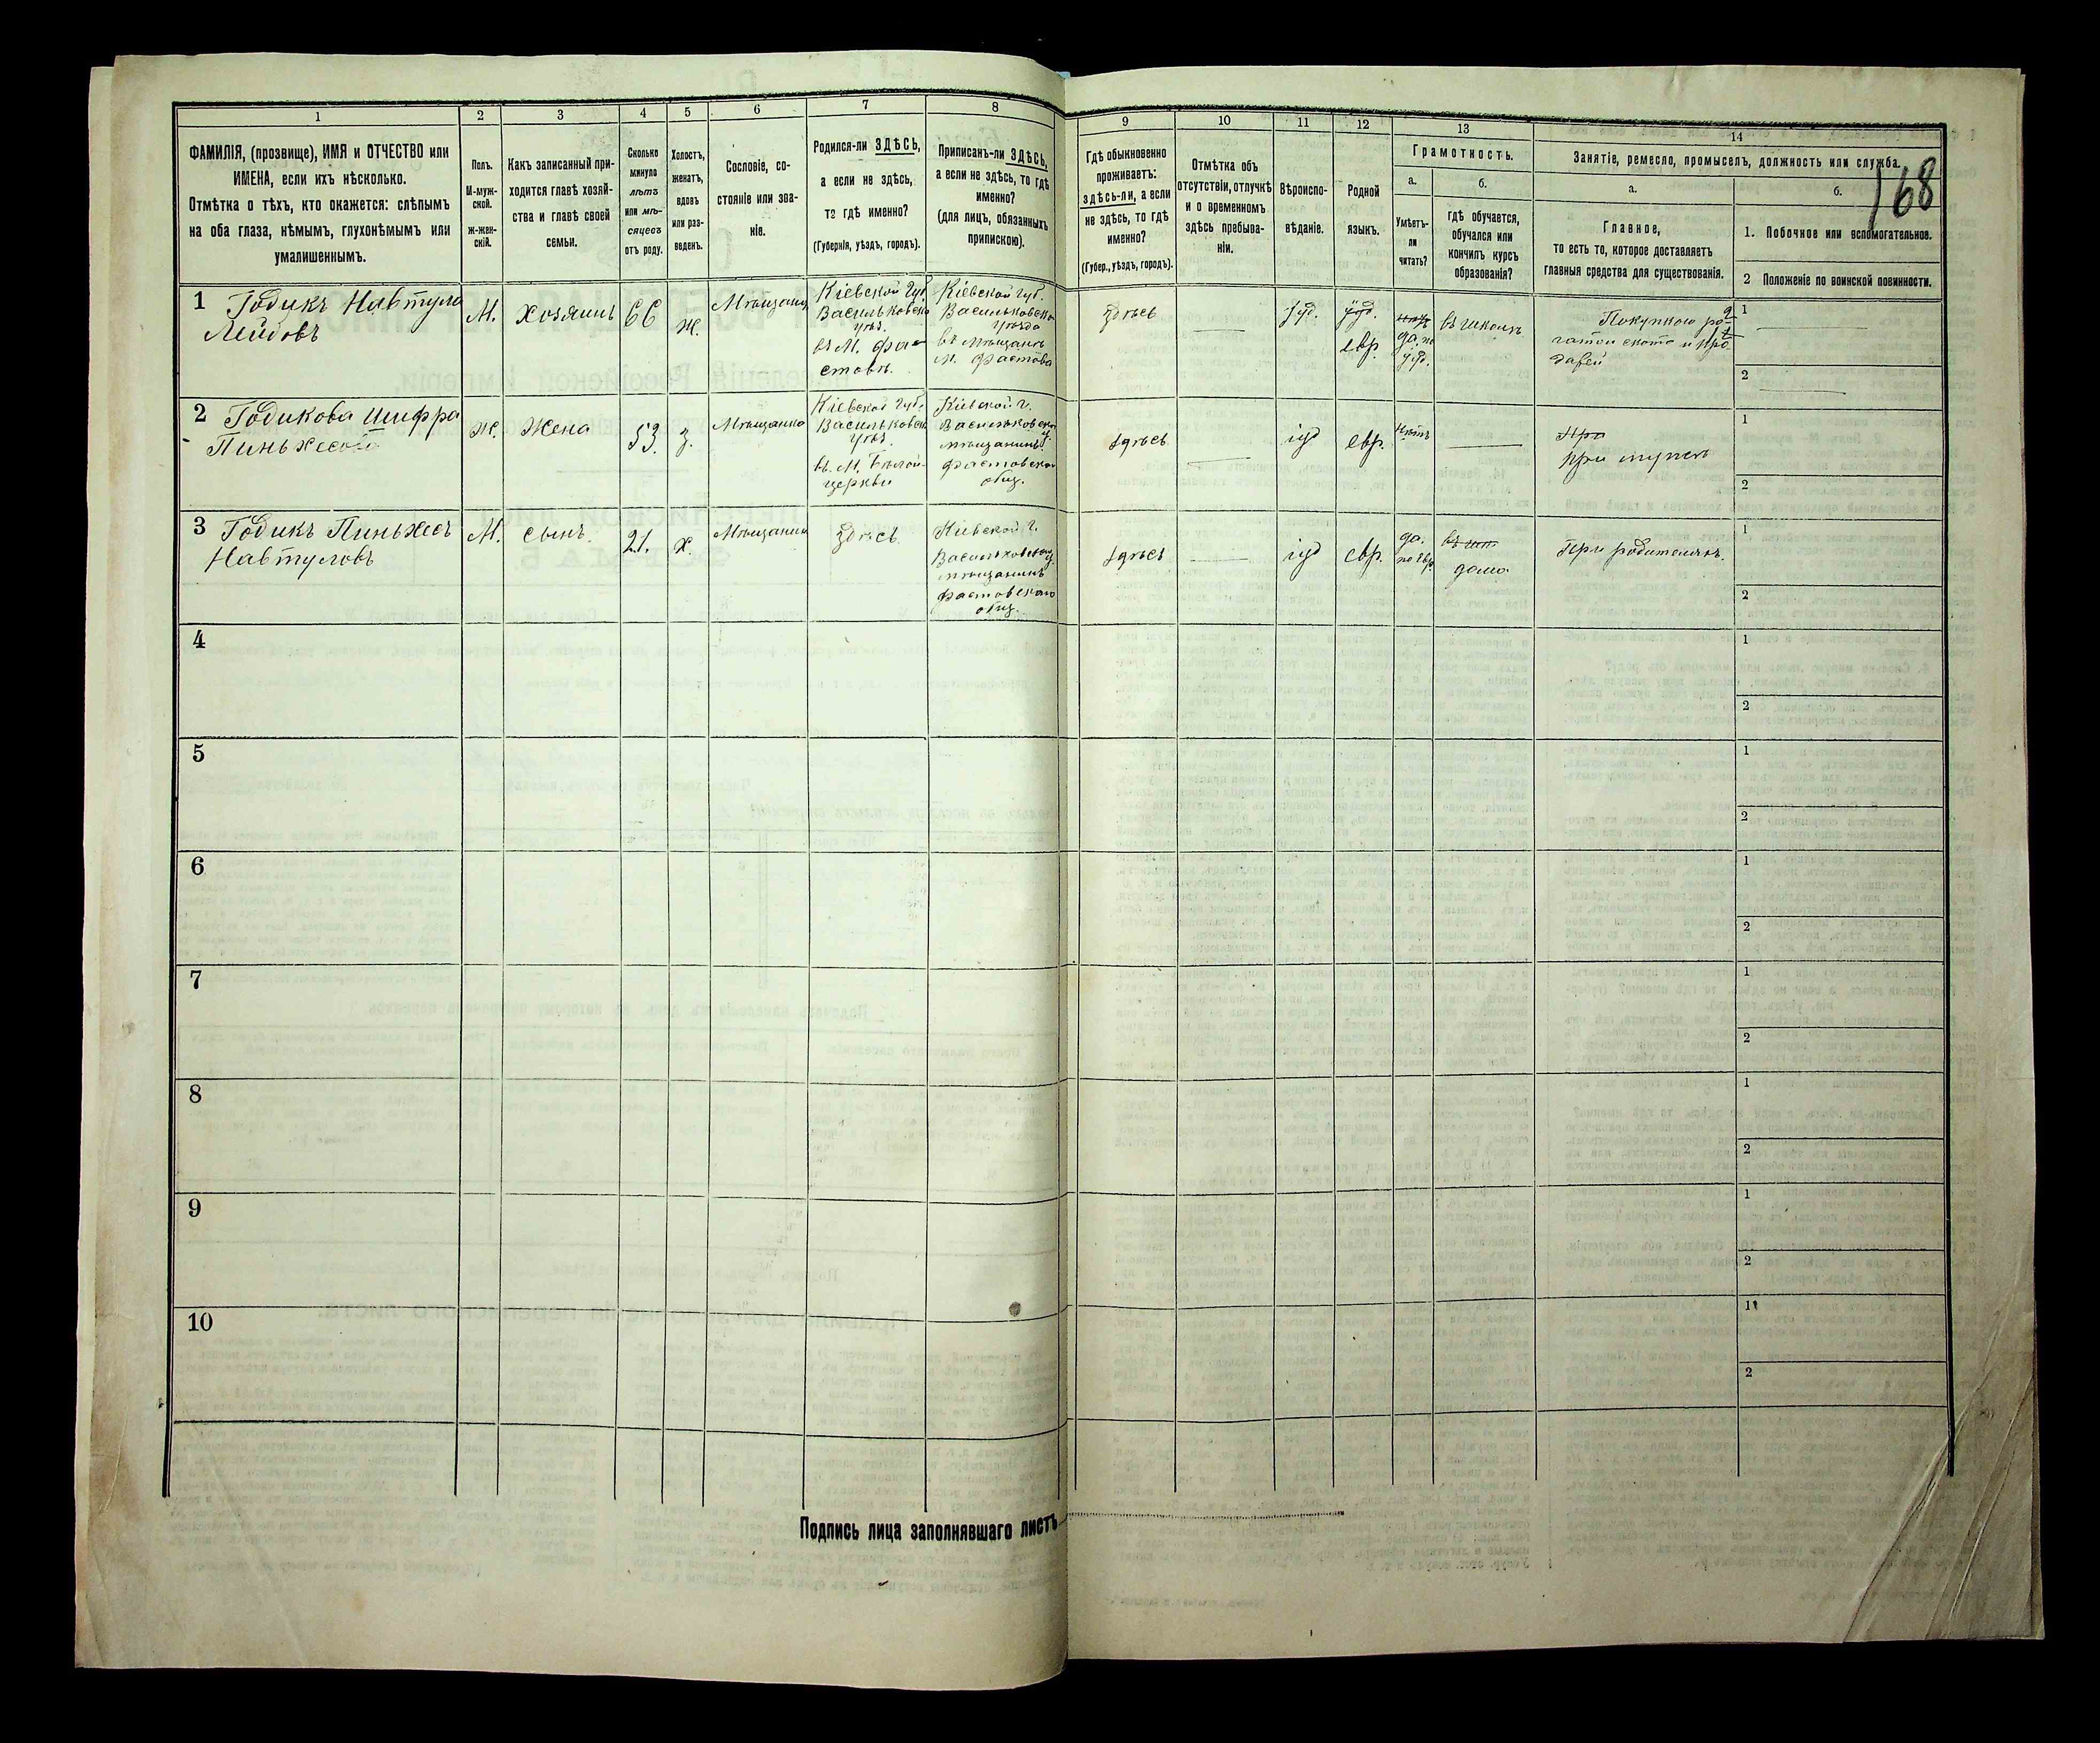 1
2
3
4
5
6
7
8
9
10
11
12
13
14
ФАМИЛІЯ, (прозвище), ИМЯ и ОТЧЕСТВО или
ИМЕНА, если ихъ нѣсколько.
Отмѣтка о тѣхъ, кто окажется: слѣпымъ
на оба глаза, нѣмымъ, глухонѣмымъ или
умалишеннымъ.
Полъ.
М-муж-
ской.
ж-жен-
скій.
Какъ записанный при-
ходится главѣ хозяй-
ства и главѣ своей
семьи.
Сколько
минуло
лѣтъ
или мѣ-
сяцевъ
отъ роду.
Холостъ,
женатъ,
вдовъ
или раз-
веденъ.
Сословіе, со-
стояніе или зва-
ніе.
Родился-ли ЗДѢСЬ,
а если не здѣсь,
то гдѣ именно?
(Губернія, уѣздъ, городъ).
Приписанъ-ли ЗДѢСЬ,
а если не здѣсь, то гдѣ
именно?
(для лицъ, обязанныхъ
припискою).
Гдѣ обыкновенно
проживаетъ:
здѣсь-ли, а если
не здѣсь, то гдѣ
именно?
(Губер., уѣздъ, городъ).
Отмѣтка объ
отсутствіи, отлучкѣ
и о временномъ
здѣсь пребыва-
ніи.
Вѣроиспо-
вѣданіе.
Родной
языкъ.
Грамотность.
а.
б.
Умѣетъ-
ли
читать?
гдѣ обучается,
обучался или
кончилъ курсъ
образованія?
Занятіе, ремесло, промыселъ, должность или служба.
168
а.
б.
Главное,
то есть то, которое доставляетъ
главныя средства для существованія.
1. Побочное или вспомогательное.
2 Положеніе по воинской повинности.
1 Годикъ Навтула
Лейбовъ
М.
Хозяинъ
66
ж.
Мѣщанинъ
Кіевской Губ.
Васильковско
уѣз.
въ М. Фа-
стовъ.
Кіевской губ.
Васильковско
уѣзда
въ мѣщанъ
м. Фастова
Здѣсь
Іуд.
Іуд.
евр.
нѣтъ
да. по
въ школѣ
Покупкою ро
гатой скота и про
дажей
1
2
2 Годикова Шифра
Пиньхесова
Ж.
Жена
53.
з.
Мѣщанка
Кіевской Губ.
Васильковск
уѣз.
въ. М. Бѣлой-
церкви
Кіевской г.
Васильковско
мѣщанинъ
Фастовской
общ.
здѣсь
іуд
евр.
нѣтъ
При
при мужѣ
1
2
3 Годикъ Пиньхесъ
Навтуловъ
М.
сынъ.
21.
х.
Мѣщанин
Здѣсь
Кіевской г.
Васильковскаго
мѣщанинъ
Фастовскаго
общ.
здѣсь
іуд
евр.
да.
по евр.
въ шк.
дома
При родителяхъ.
1
2
4
1
2
5
1
2
6
1
2
7
1
2
8
1
2
9
1
2
10
1
2
Подпись лица заполнявшаго листъ